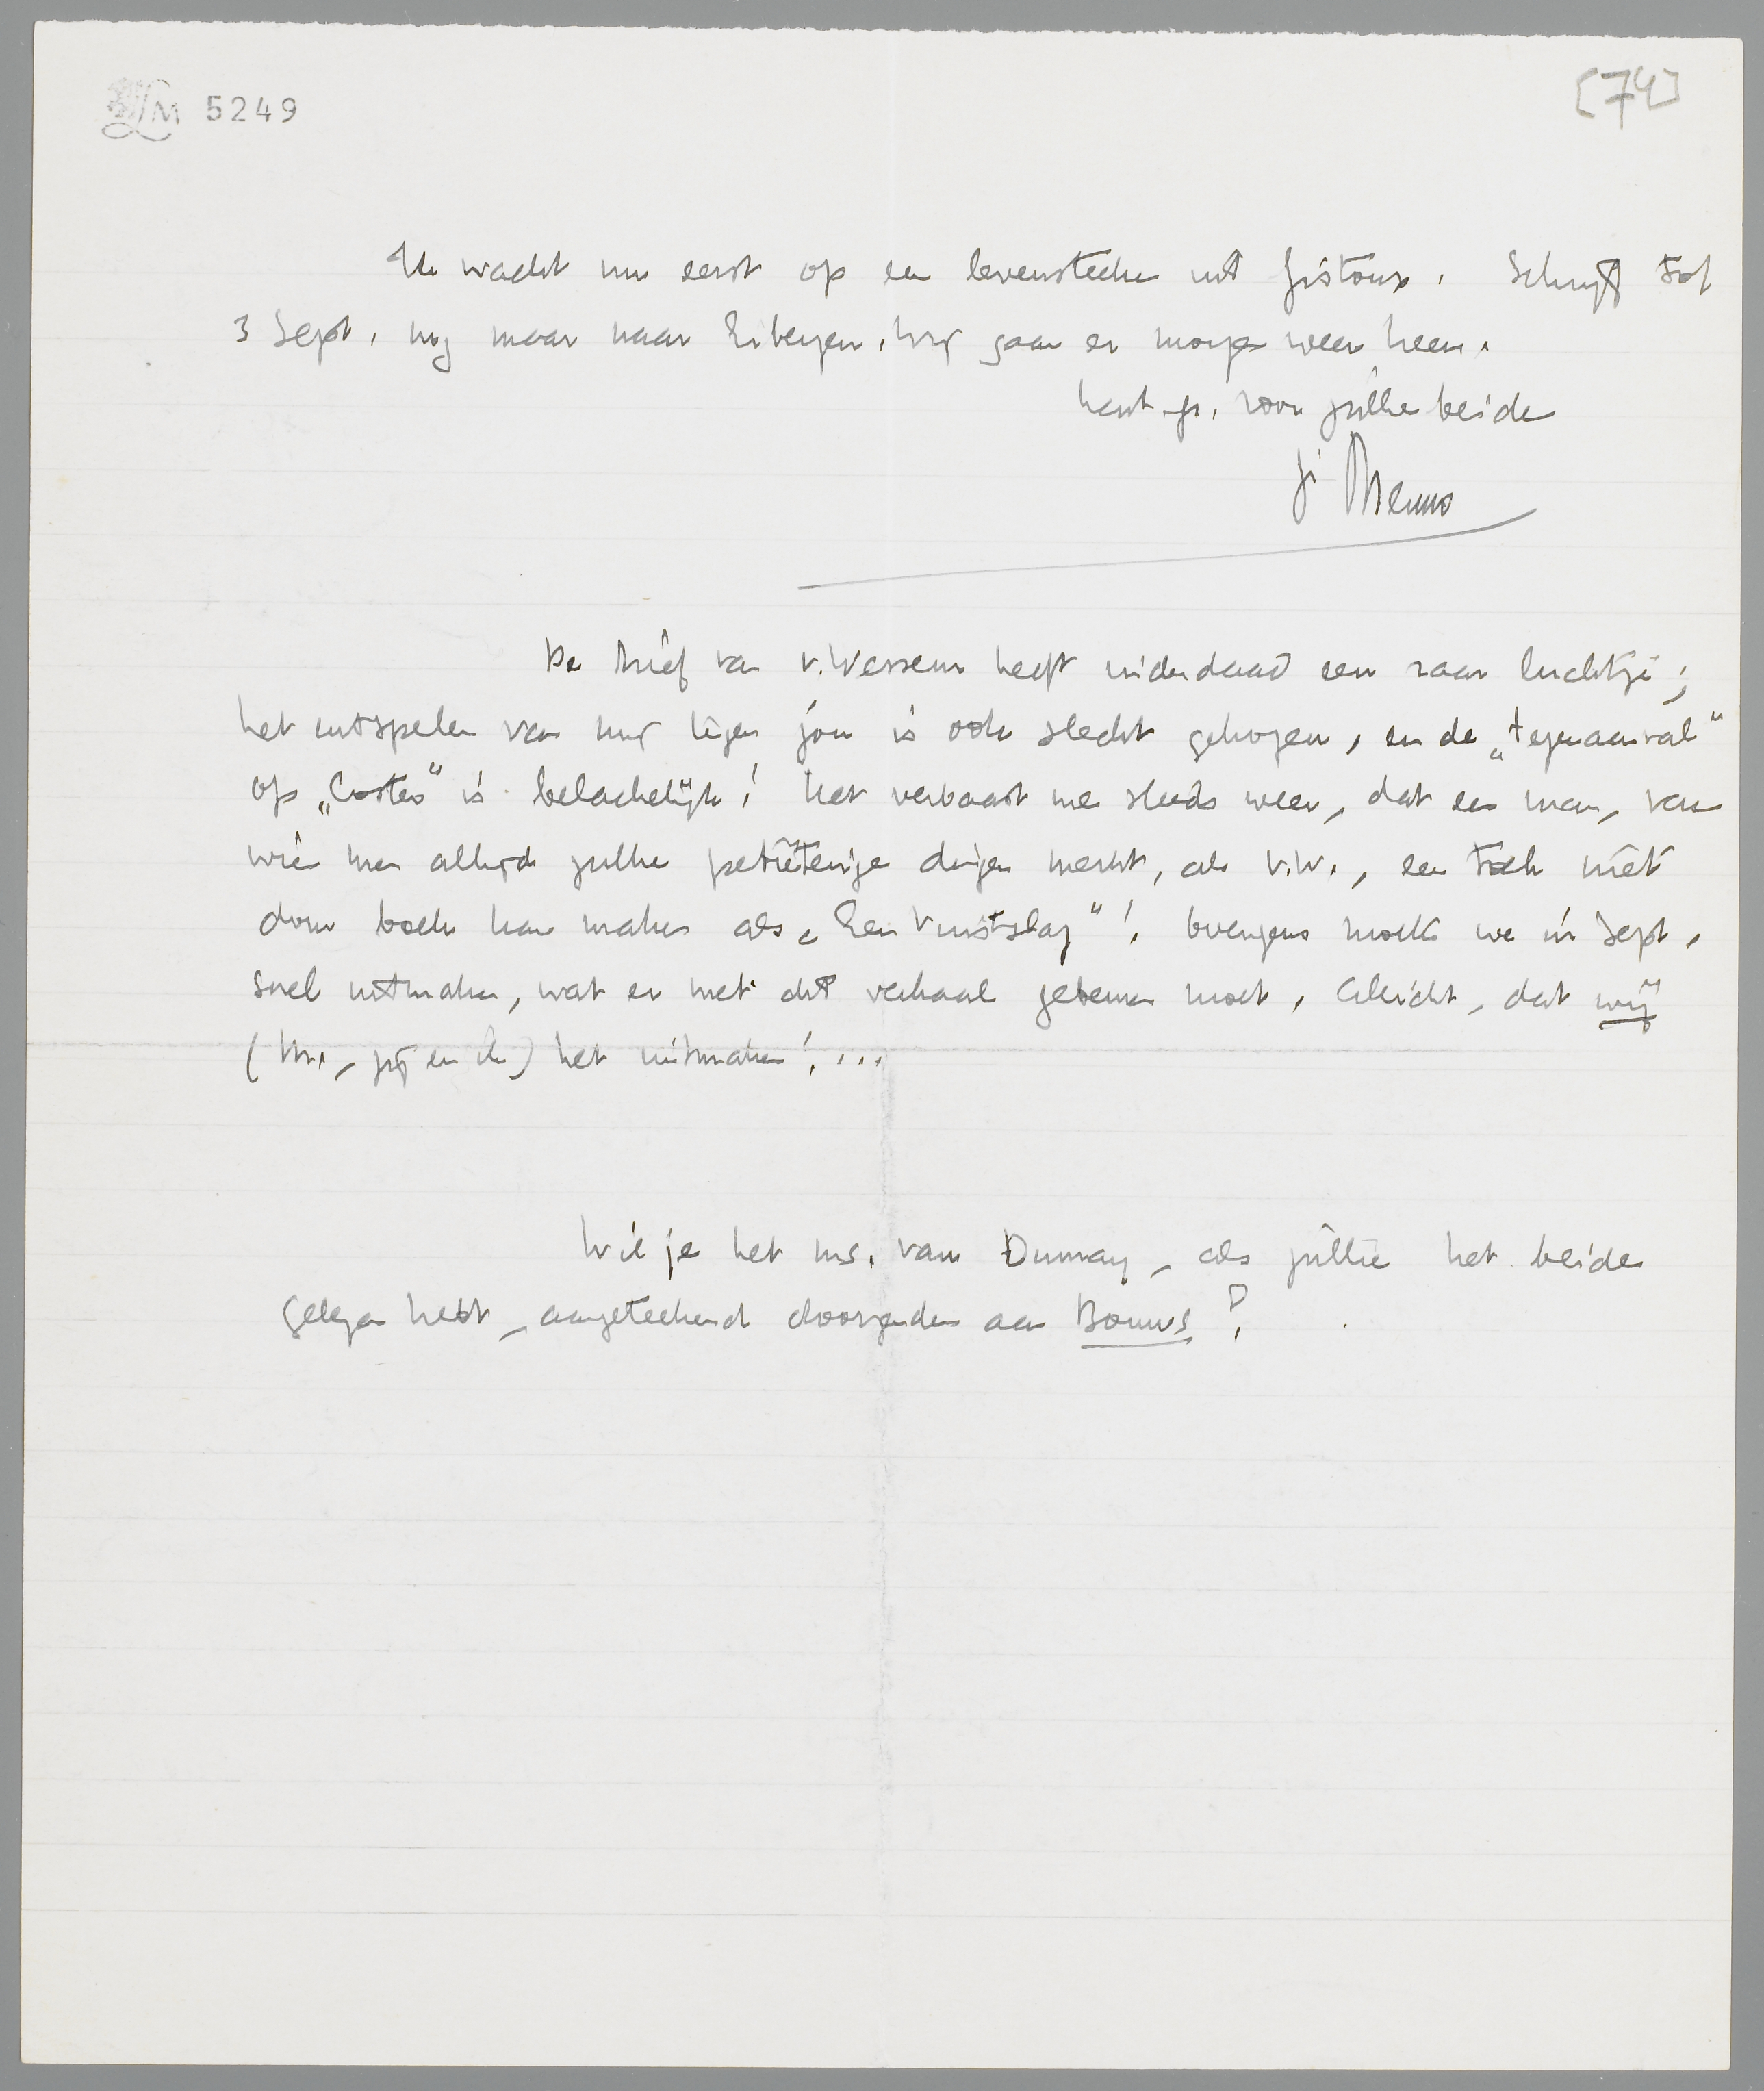 LM 5249
[74]
Ik wacht nu eerst op een levensteeken uit Gistoux. Schrijf tot
3 Sept. nog maar naar Eibergen, wij gaan er morgen weer heen.
hart. gr. voor jullie beide
je Menno
De brief van v. Wessem heeft inderdaad een raar luchtje;
het uitspelen van mij tegen jou is ook slecht gekozen, en de „tegenaanval"
op „Coster" is belachelijk! Het verbaast me steeds weer, dat een man, van
wie men altijd zulke petieterige dingen merkt, als v.W., een toch niet
dom boek kan maken als „Een Vuistslag"! Overigens moeten we in Sept.
snel uitmaken, wat er met dit verhaal gebeuren moet. Allicht, dat wij
(Mr., jij en ik) het uitmaken!...
Wil je het ms. van Dumay, als jullie het beide
gelezen hebt, aangeteekend doorzenden aan Bouws?